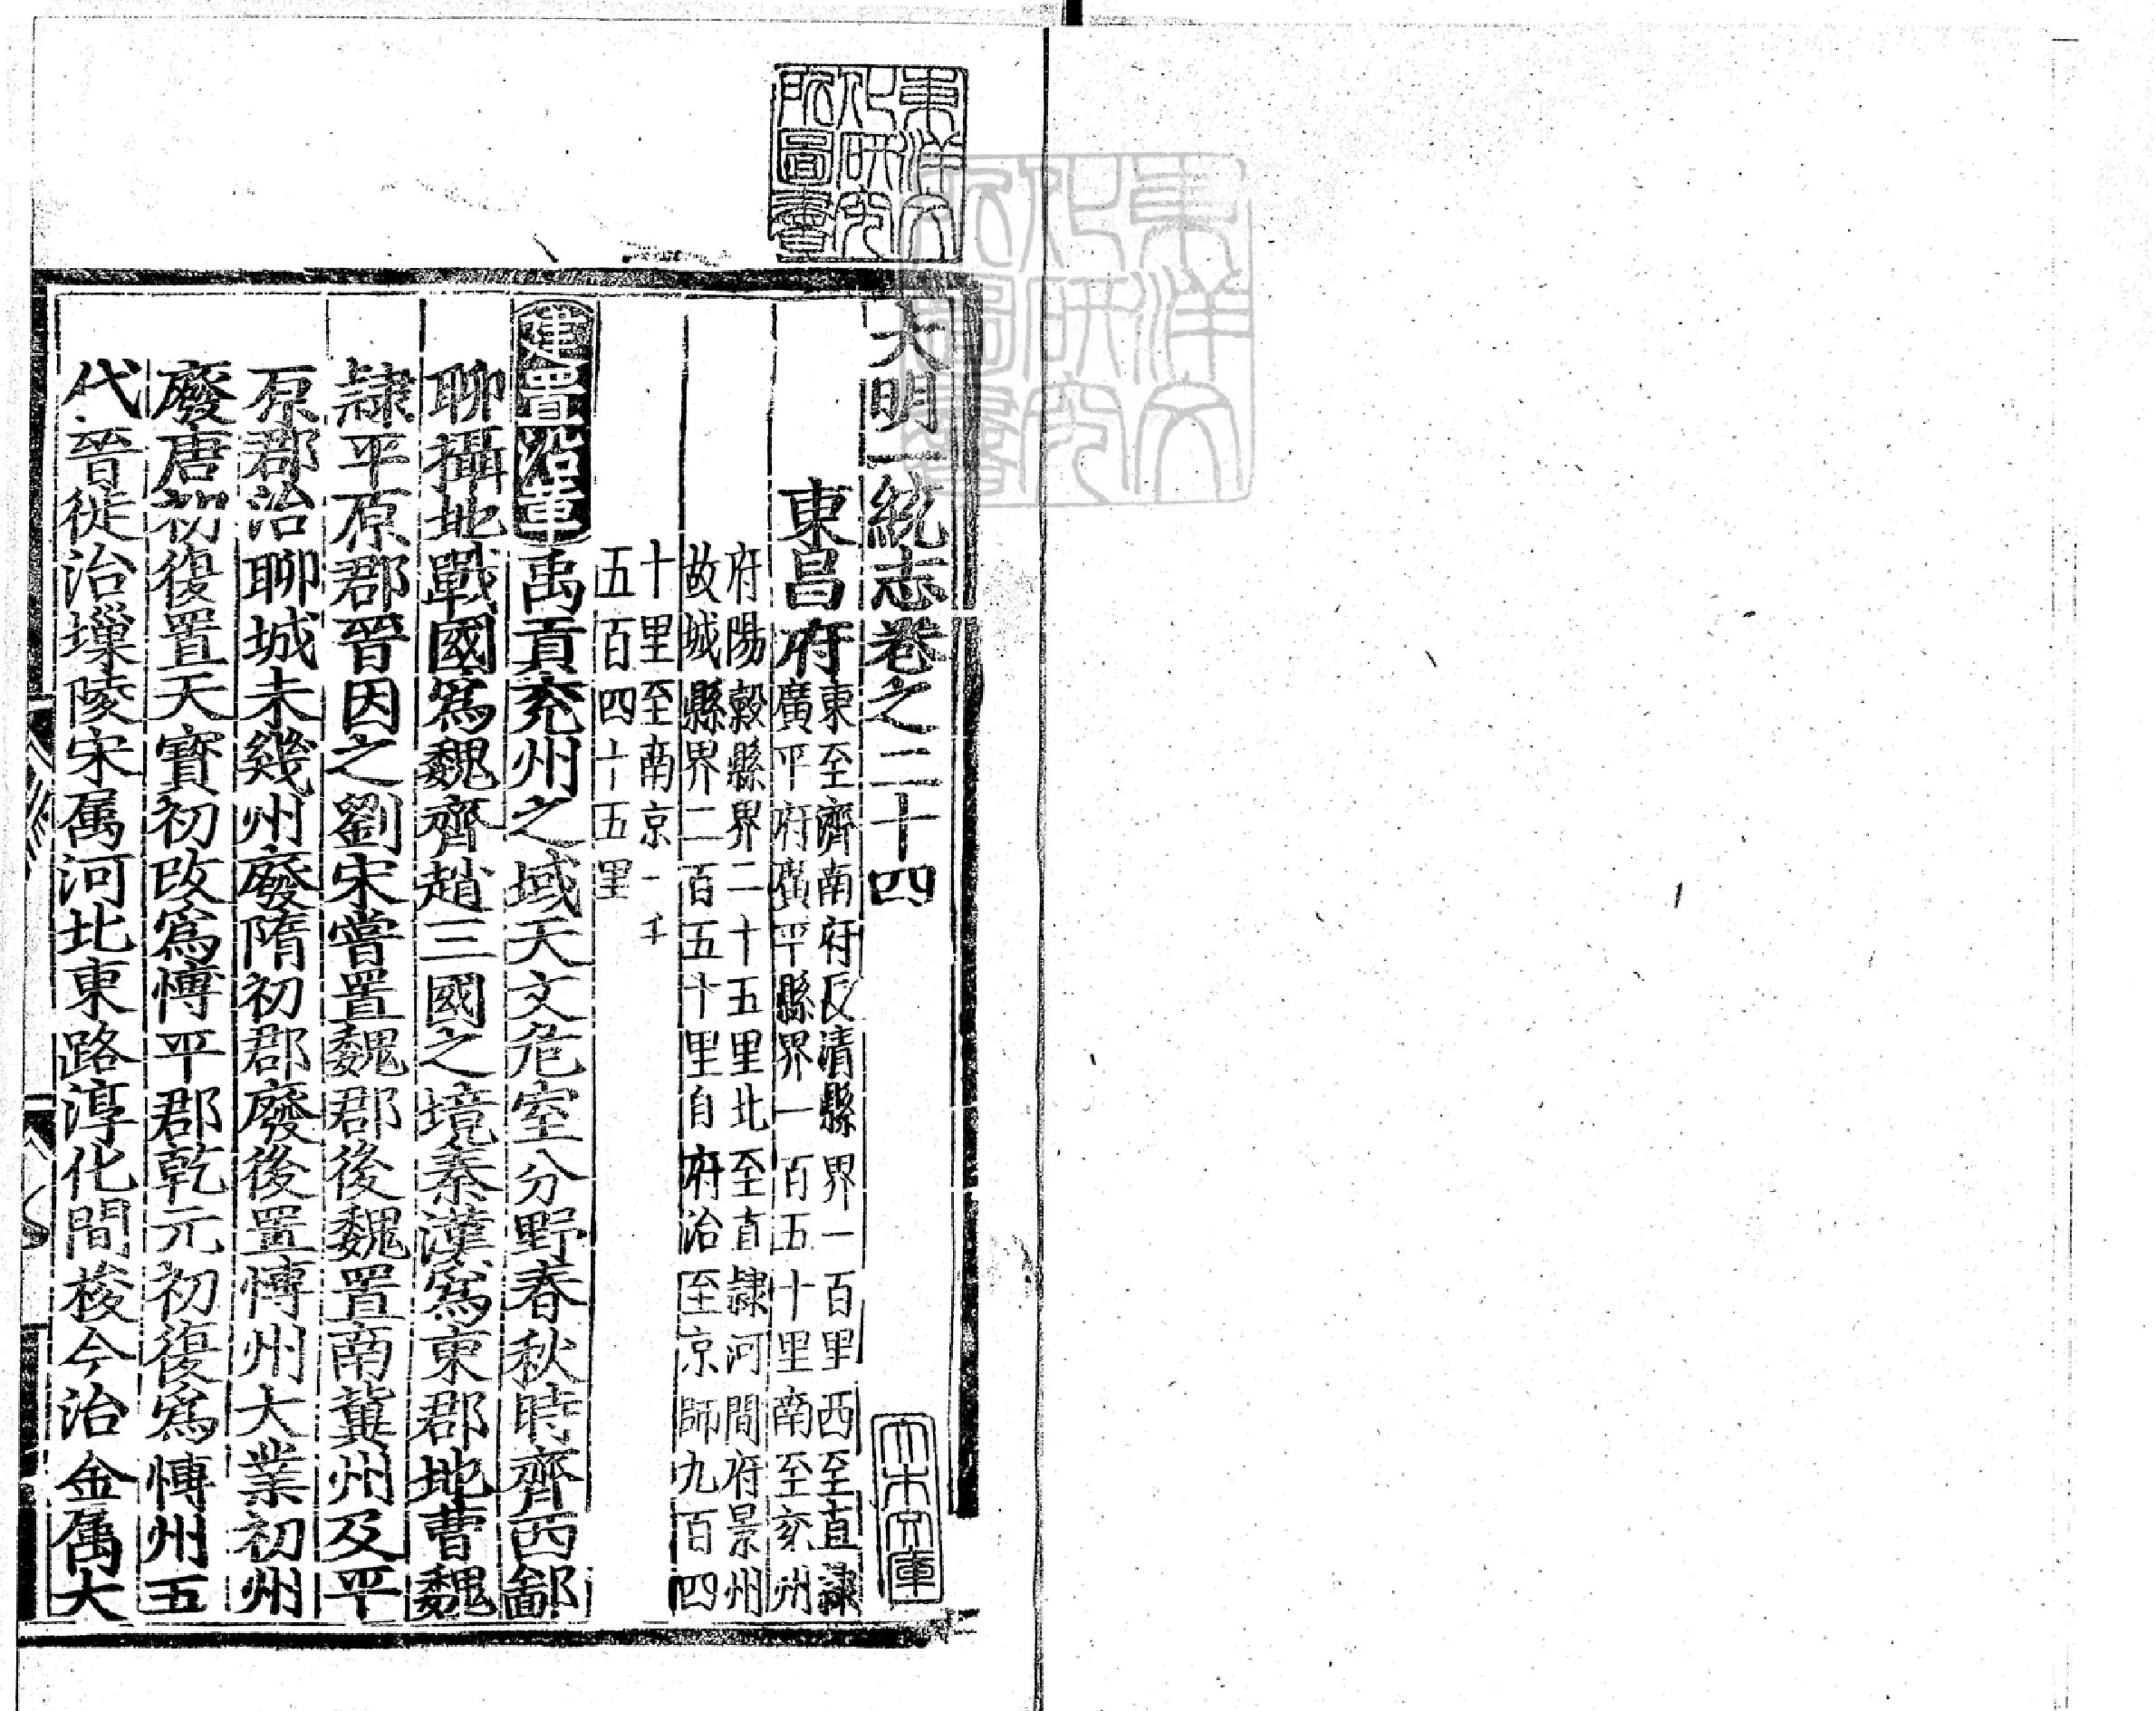 大明一統志卷之二十四
東昌府
東至濟南府長清縣界一百里西至直隷
廣平府廣平縣界一百五十里南至兖州
府陽穀縣界二十五里北至直隷河間府景州
故城縣界二百五十里自府治至京師九百四
十里至南京一千
五百四十五里
建置沿革禹貢兖州之域天文危室分野春秋時齊西鄙
聊攝地戰國爲魏齊趙三國之境秦漢爲東郡地曹魏
隷平原郡晉因之劉宋嘗置魏郡後魏置南冀州及平
原郡治聊城未幾州廢隋初郡廢後置博州大業初州
廢唐初復置天寳初改爲博平郡乾元初復爲博州五
代晉徙治巢陵宋属河北東路淳化間梭今治金属大
東洋文
化研究
所圖書
大木文庫
東洋文
化研究
所圖書